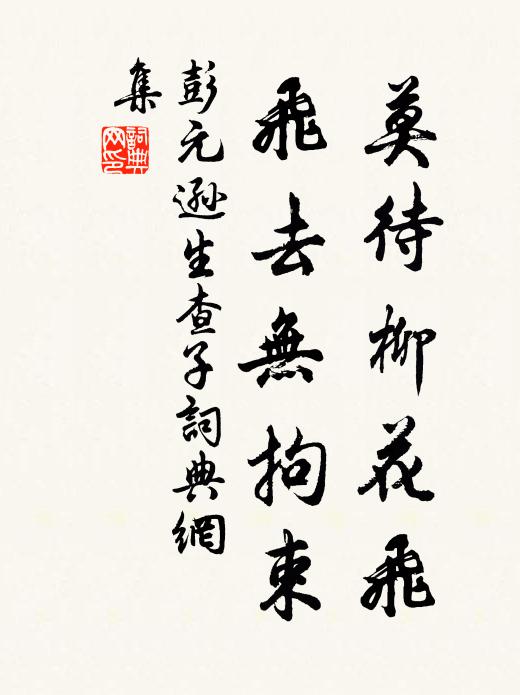 莫待柳花飛
飛去無拘束
彭元遜生查子詞典網
集
詞典網印